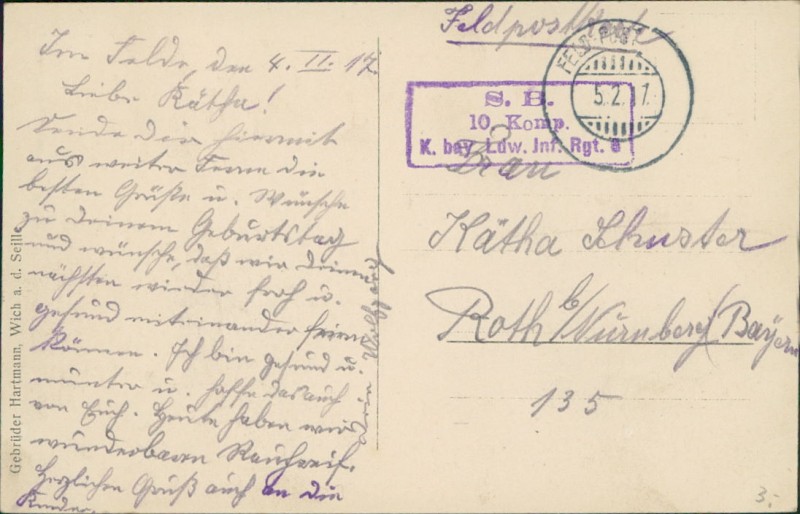 Im Felde, den 4. II. 17.
Liebe Kätha!
Sende dir hiermit
aus weiter Ferne die
besten Grüße u. Wünsche
zu deinem Geburtstag
und wünsche, daß wir deinen
nächsten wieder froh u.
gesund miteinander feiern
können. Ich bin gesund u.
munter u. hoffe das auch
von Euch. Heute haben wir
wunderbaren Rauhreif.
Herzlichen Gruß auch an die
Kinder.
Dein
Gebrüder Hartmann, Wich a. d. Seille
Feldpostkarte
FELD-POST
5.2.17.
S. B.
10. Komp.
K. bay. Ldw. Inf. Rgt.
Frau
Kätha Schuster
Roth b/Nürnberg (Bayern
135
3.-